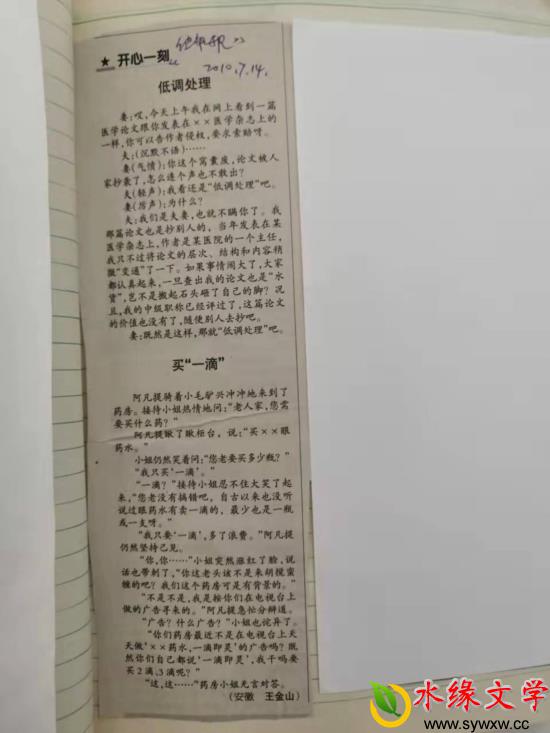 ★ 开心一刻
2010.7.14.
低调处理
妻:哎,今天上午我在网上看到一篇
医学论文跟你发表在××医学杂志上的
一样,你可以告作者侵权,要求索赔呀。
夫:(沉默不语)……
妻(气愤):你这个窝囊废,论文被人
家抄袭了,怎么连个声也不敢出?
夫(轻声):我看还是“低调处理”吧。
妻(厉声):为什么?
夫:我们是夫妻,也就不瞒你了。我
那篇论文也是抄别人的,当年发表在某
医学杂志上,作者是某医院的一个主任,
我只不过将论文的层次、结构和内容稍
微“变通”了一下。如果事情闹大了,大家
都认真起来,一旦查出我的论文也是“水
货”,岂不是搬起石头砸了自己的脚?况
且,我的中级职称已经评过了,这篇论文
的价值也没有了,随便别人去抄吧。
妻:既然是这样,那就“低调处理”吧。
买“一滴”
阿凡提骑着小毛驴兴冲冲地来到了
药房。接待小姐热情地问:“老人家,您需
要买什么药?”
阿凡提瞅了瞅柜台,说:“买××眼
药水。”
小姐仍然笑着问:“您老要买多少瓶?”
“我只买‘一滴’。”
“一滴?”接待小姐忍不住大笑了起
来,“您老没有搞错吧,自古以来也没听
说过眼药水有卖一滴的,最少也是一瓶
或一支呀。”
“我只要‘一滴’,多了浪费。”阿凡提
仍然坚持己见。
“你,你……”小姐突然涨红了脸,说
话也带刺了,“你这老头该不是来胡搅蛮
缠的吧?我们这个药房可是有背景的。”
“不是不是,我是按你们在电视台上
做的广告寻来的。”阿凡提急忙分辩道。
“广告?什么广告?”小姐也诧异了。
“你们药房最近不是在电视台上天
天做‘××药水,一滴即灵’的广告吗?既
然你们自己都说‘一滴即灵’,我干吗要
买2滴、3滴呢?”
“这,这……”药房小姐无言对答。
(安徽 王金山)
水缘文学
www.sywxw.cc